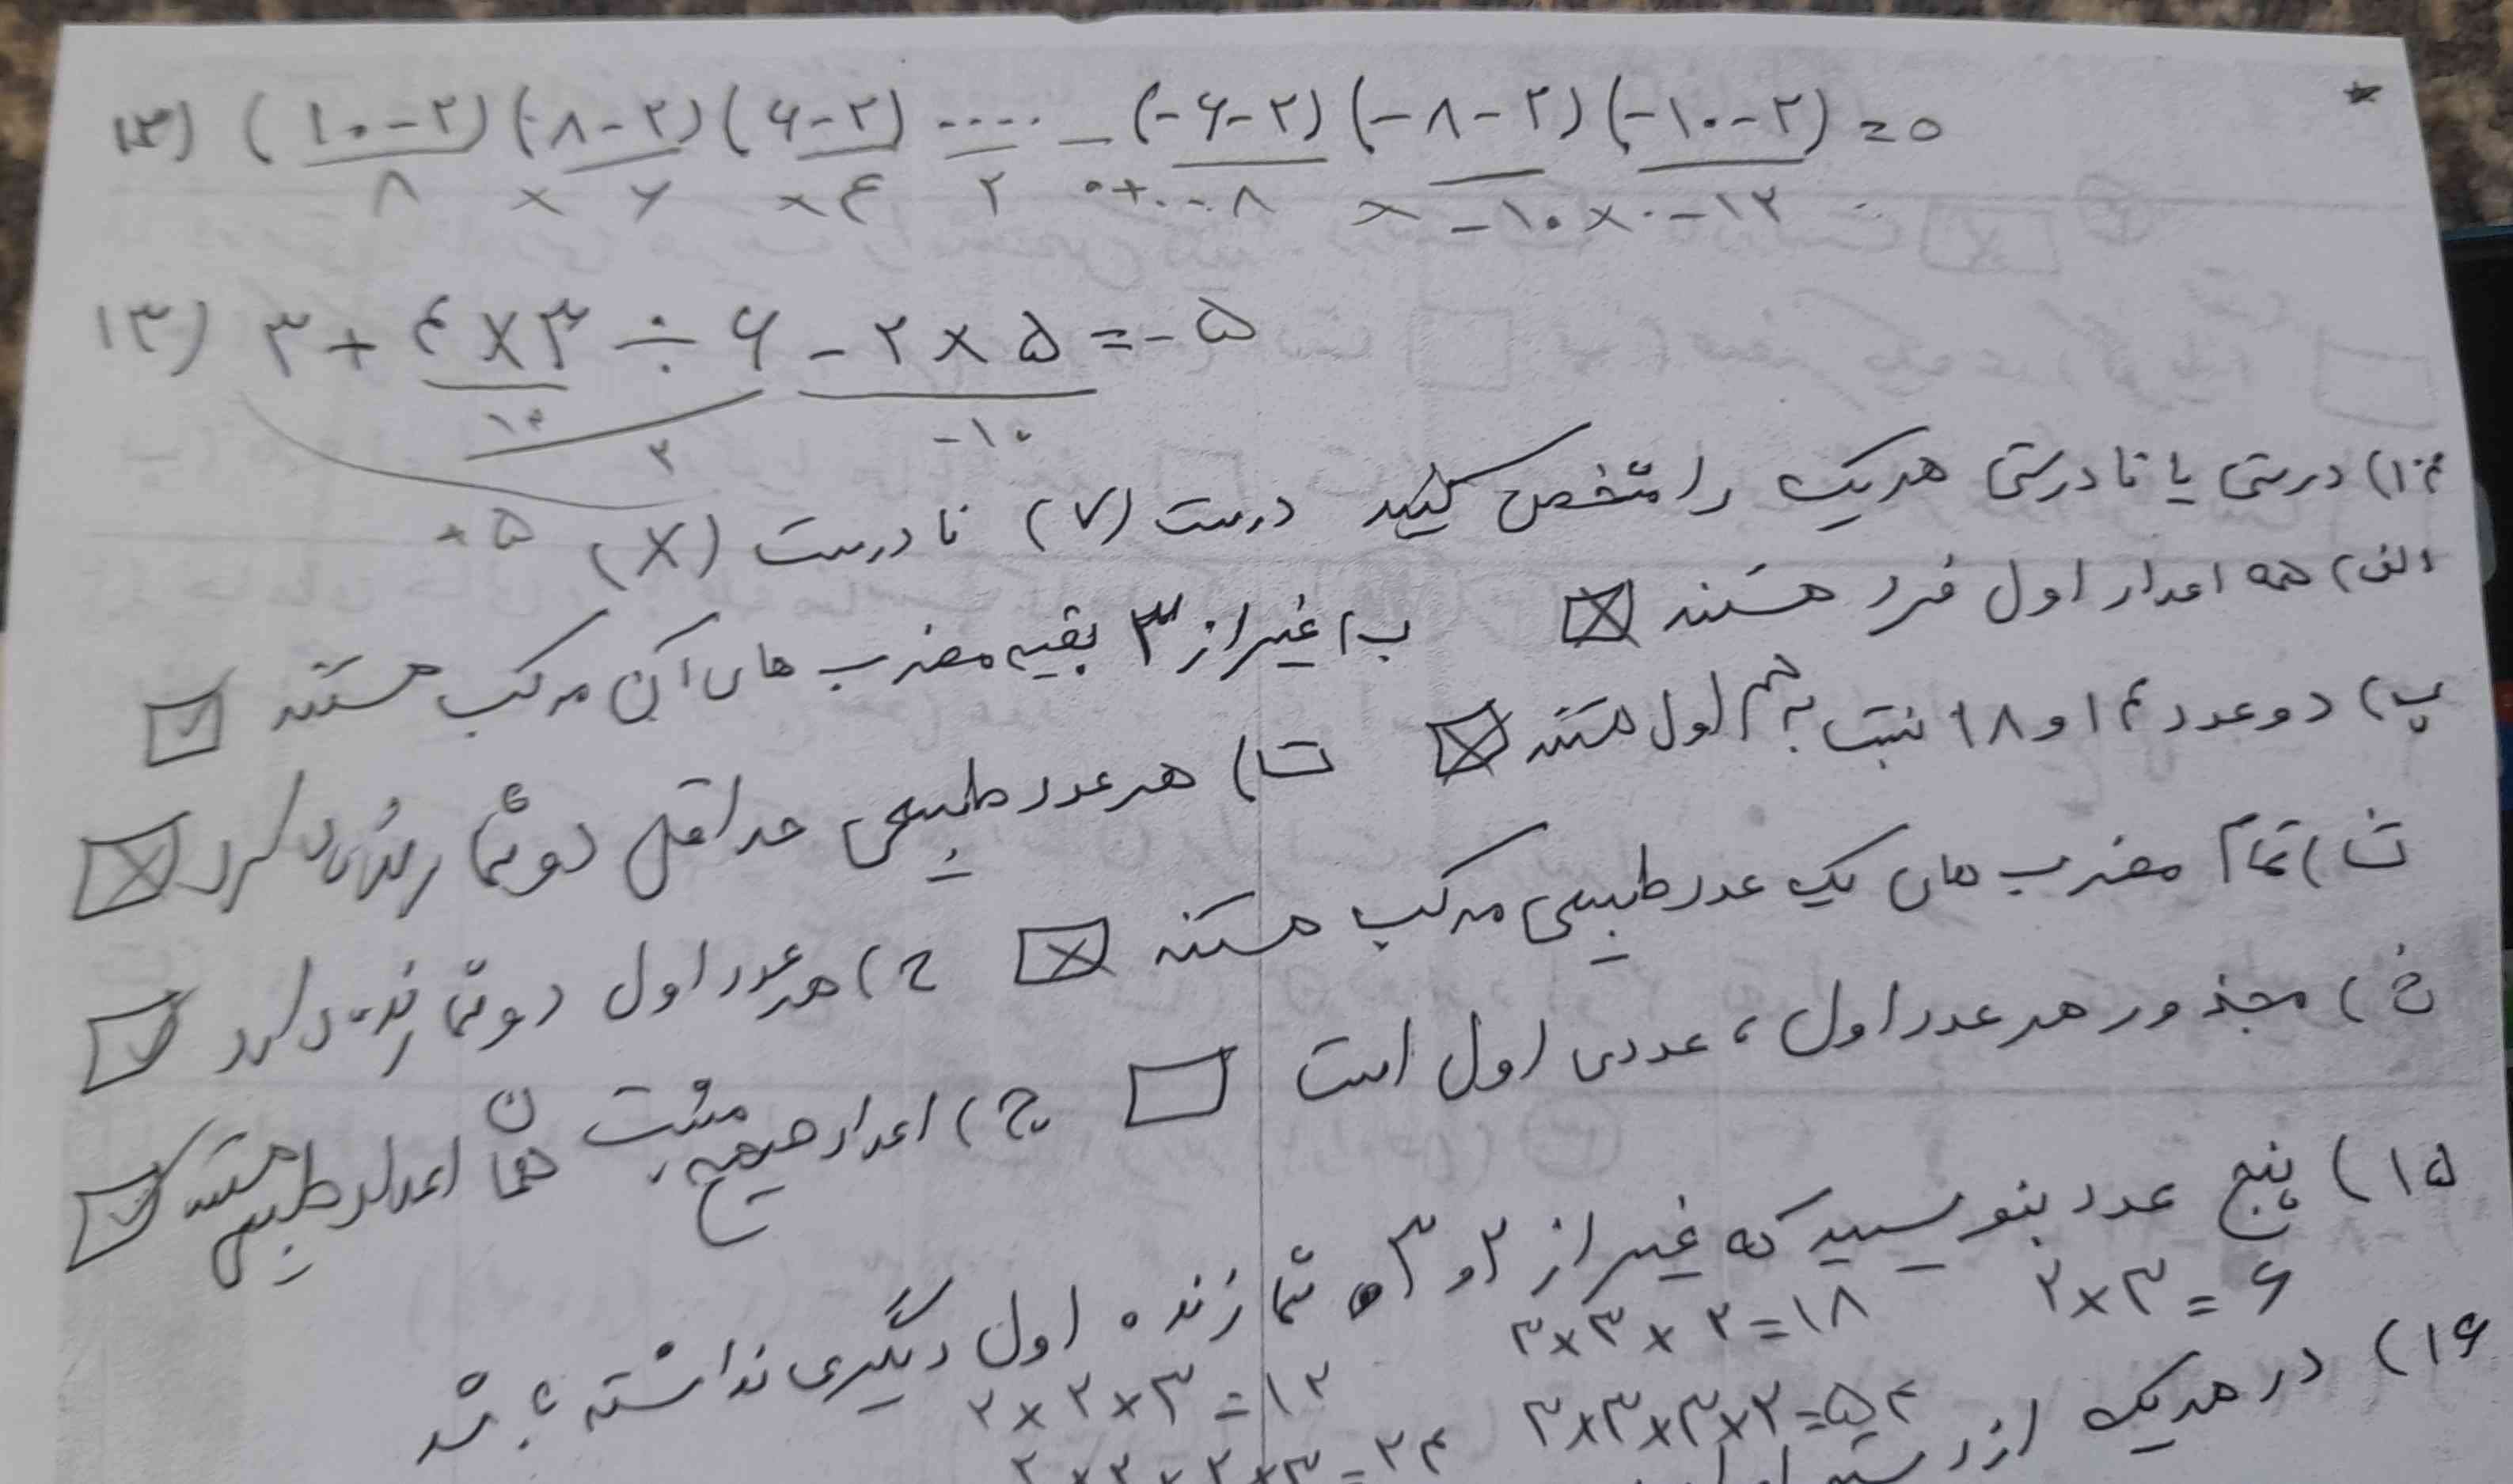 ۱۲) (۱۰-۲)(۸-۲)(۶-۲) ..... - (-۶-۲)(-۸-۲)(-۱۰-۲) = ۰
۸ × ۶ × ۴ ۲ ۰ + ... - ۸ × -۱۰ × -۱۲
۱۳) ۳ + ۴ × ۳ ÷ ۶ - ۲ × ۵ = -۵
۱۲ -۱۰
۲
۱۴) درستی یا نادرستی هریک را مشخص کنید درست (✓) نادرست (×) ۵
الف) همه اعداد اول فرد هستند ☒ ب) غیر از ۳ بقیه مضرب های آن مرکب هستند ☑
پ) دو عدد ۱۴ و ۱۸ نسبت به هم اول هستند ☒ ت) هر عدد طبیعی حداقل دو شمارنده دارد ☒
ث) تمام مضرب های یک عدد طبیعی مرکب هستند ☒ ح) هر عدد اول دو شمارنده دارد ☑
خ) مجذور هر عدد اول، عددی اول است ☐ چ) اعداد صحیح مثبت همان اعداد طبیعی هستند ☑
۱۵) پنج عدد بنویسید که غیر از ۲ و ۳ شمارنده اول دیگری نداشته باشد
۲×۳=۶ ۳×۳×۲=۱۸ ۲×۲×۳=۱۲
۳×۳×۳×۲=۵۴ ۲×۲×۲×۳=۲۴
۱۶) در هریک از